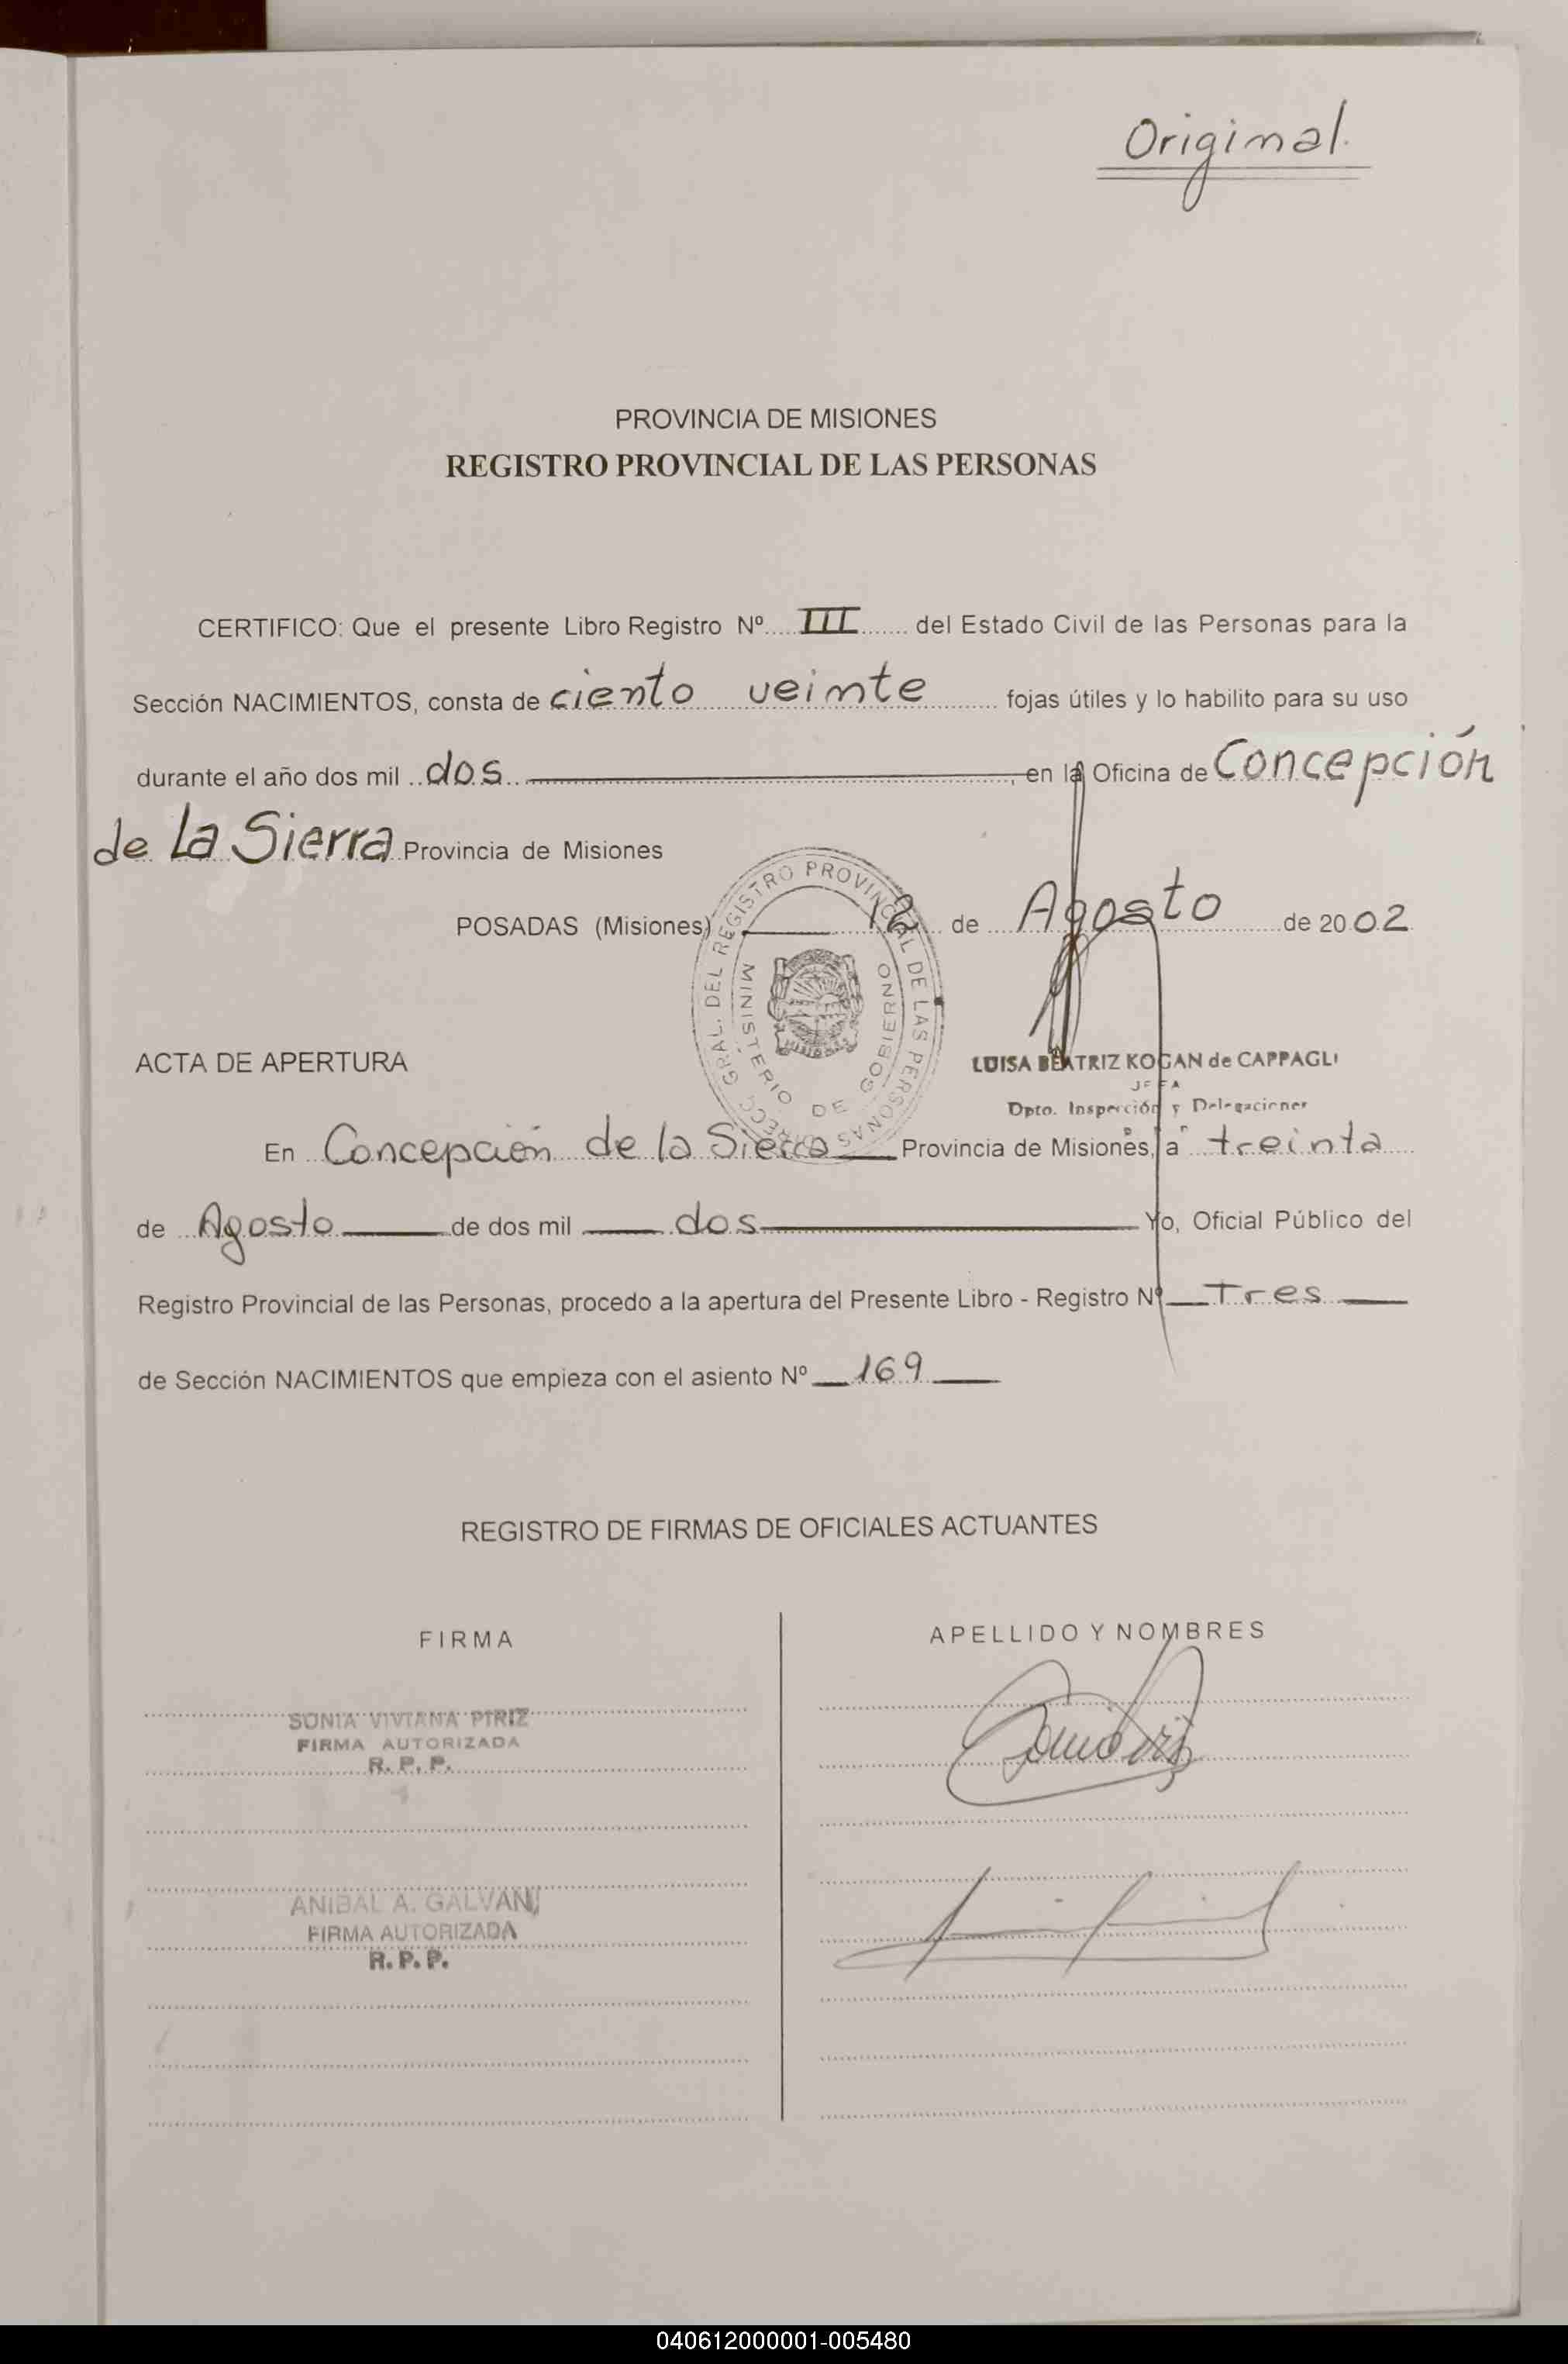 Original.
PROVINCIA DE MISIONES
REGISTRO PROVINCIAL DE LAS PERSONAS
CERTIFICO: Que el presente Libro Registro Nº III del Estado Civil de las Personas para la
Sección NACIMIENTOS, consta de ciento veinte fojas útiles y lo habilito para su uso
durante el año dos mil dos, en la Oficina de Concepción
de La Sierra Provincia de Misiones
POSADAS (Misiones) 12 de Agosto de 2002
DIRECC. GRAL. DEL REGISTRO PROVINCIAL DE LAS PERSONAS
MINISTERIO DE GOBIERNO
LUISA BEATRIZ KOGAN de CAPPAGLI
JEFA
Dpto. Inspección y Delegaciones
ACTA DE APERTURA
En Concepción de la Sierra Provincia de Misiones, a treinta
de Agosto de dos mil dos Yo, Oficial Público del
Registro Provincial de las Personas, procedo a la apertura del Presente Libro - Registro Nº Tres
de Sección NACIMIENTOS que empieza con el asiento Nº 169
REGISTRO DE FIRMAS DE OFICIALES ACTUANTES
FIRMA APELLIDO Y NOMBRES
SONIA VIVIANA PIRIZ
FIRMA AUTORIZADA
R. P. P.
ANIBAL A. GALVAN
FIRMA AUTORIZADA
R. P. P.
040612000001-005480